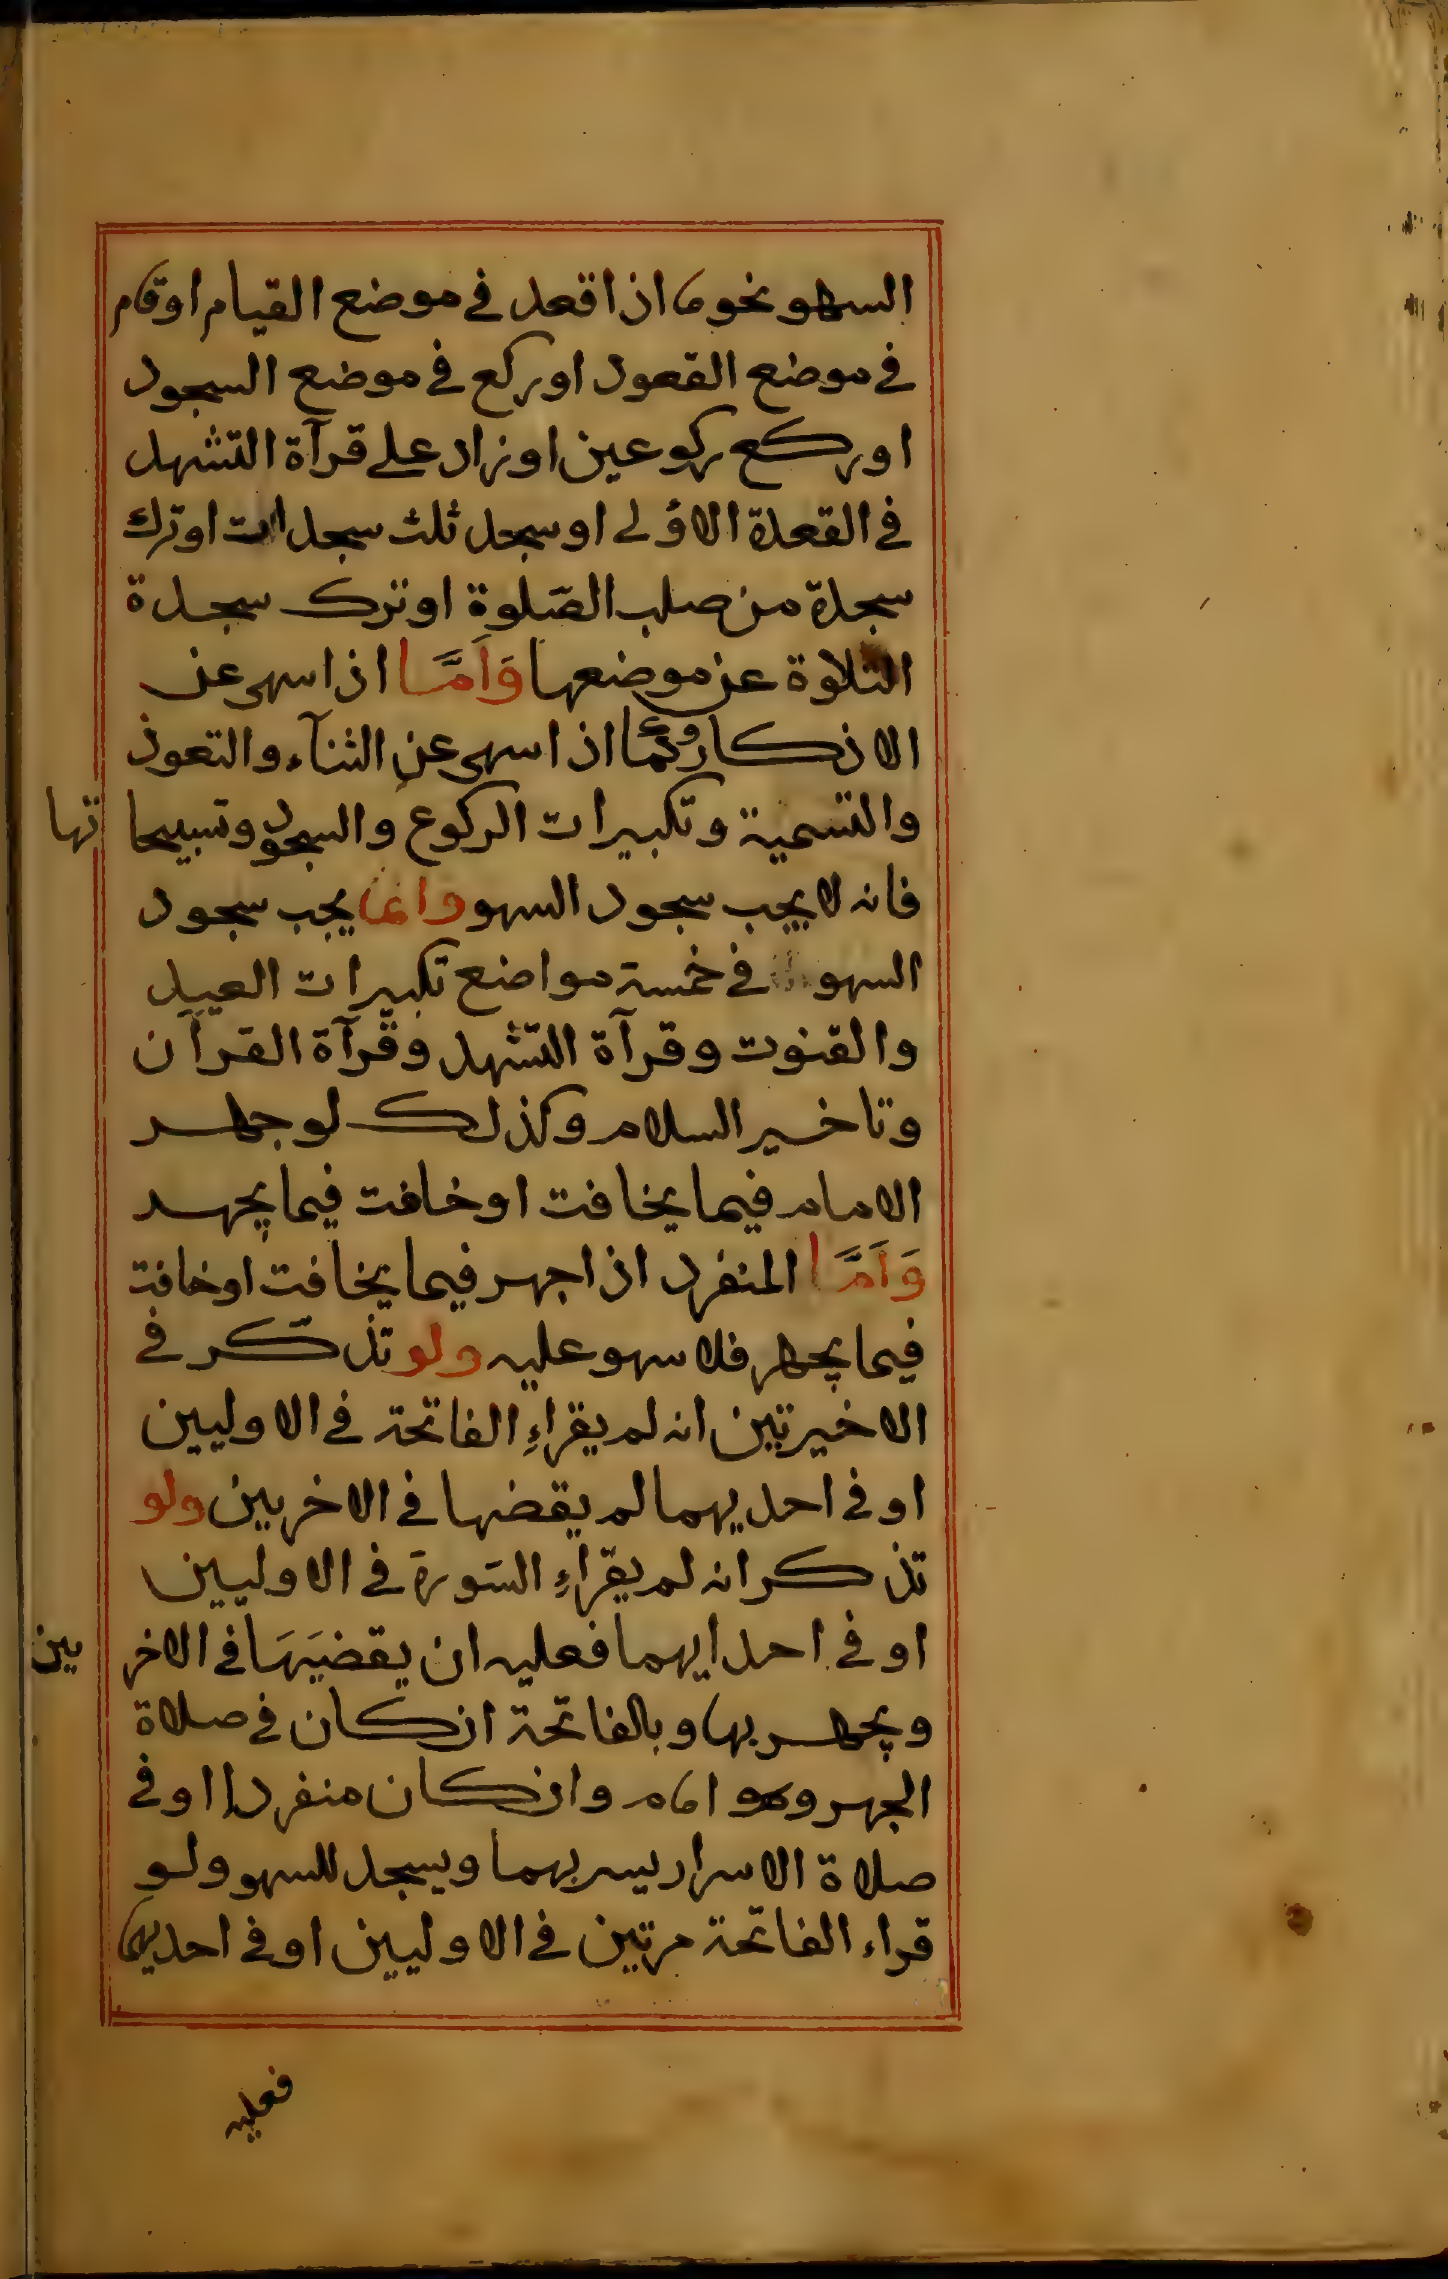 السهو نحو ما اذا قعد في موضع القيام او قام
في موضع القعود او ركع في موضع السجود
او ركع ركوعين او زاد على قرآة التشهد
في القعدة الاولى او سجد ثلث سجدات او ترك
سجدة من صلب الصّلوة او ترك سجدة
التلاوة عن موضعها وَاَمَّا اذا سهى عن
الاذكار وكما اذا سهى عنِ الثنآء والتعوذ
والتسمية وتكبيرات الركوع والسجود وتسبيحاتها
فانه لا يجب سجود السهو وانما يجب سجود
السهو في خمسة مواضع تكبيرات العيد
والقنوت وقرآة التشهد وقرآة القرآن
وتاخير السلام وكذلك لو جهر
الامام فيما يخافت او خافت فيما يجهر
وَاَمَّا المنفرد اذا جهر فيما يخافت او خافت
فيما يجهر فلا سهو عليه ولو تذكّر في
الاخيرتين انه لم يقراءِ الفاتحة في الاوليين
او في احديهما لم يقضها في الاخريين ولو
تذكر انه لم يقراءِ السَورةَ في الاوليين
او في احدايهما فعليه ان يقضيَهَا في الاخريين
ويجهر بها وبالفاتحة ان كان في صلاة
الجهر وهو امام وان كان منفردا او في
صلاة الاسرار يسر بهما ويسجد للسهو ولو
قراء الفاتحة مرتين في الاوليين او في احديهما
فعليه